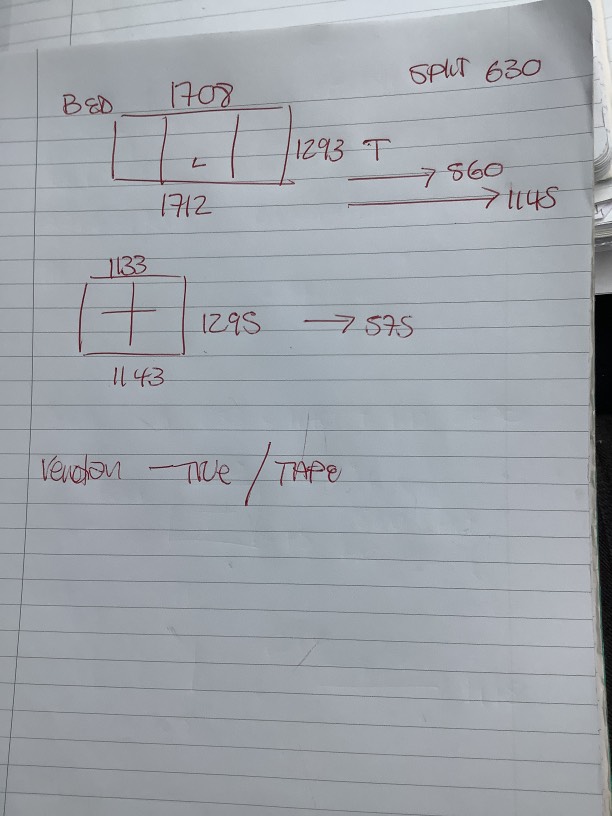 SPLIT 630
BED 1708
1293 T
→ 860
1712
→ 1145
1133
1295 → 575
1143
/ TAPE